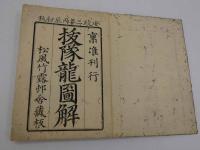 稟准刊行
拔隊龍圖解
松風竹露邨舍藏板